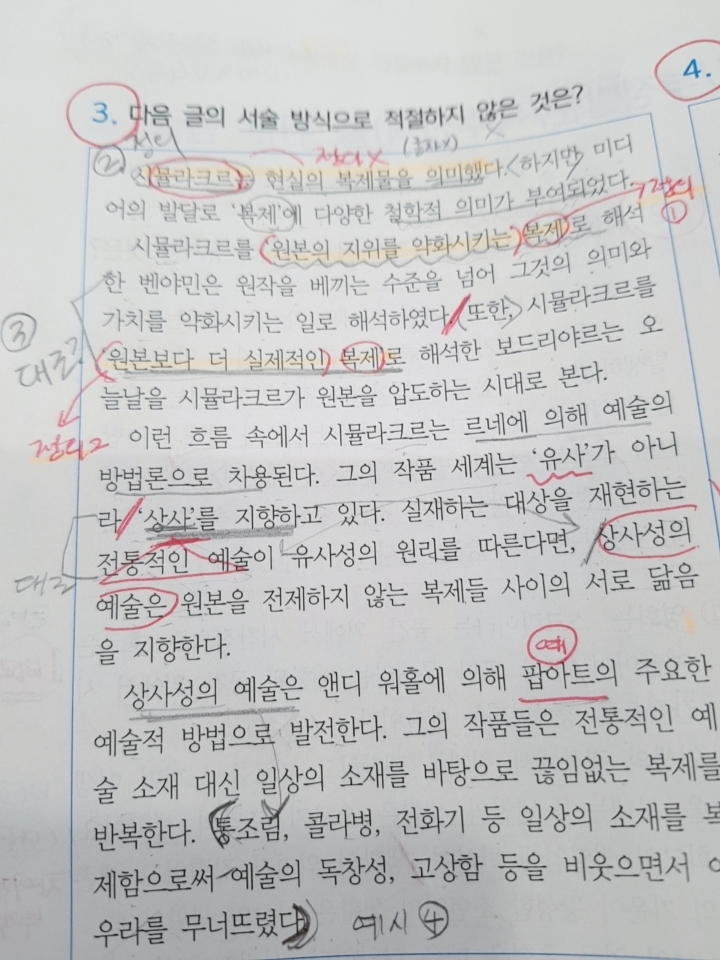 3. 다음 글의 서술 방식으로 적절하지 않은 것은?
4.
정의
②
정의 X
(글자X)
X
시뮬라크르는 현실의 복제물을 의미했다. 하지만 미디
어의 발달로 '복제'에 다양한 철학적 의미가 부여되었다.
정의
①
시뮬라크르를 '원본의 지위를 약화시키는 복제'로 해석
한 벤야민은 원작을 베끼는 수준을 넘어 그것의 의미와
가치를 약화시키는 일로 해석하였다. 또한, 시뮬라크르를
③
대조?
'원본보다 더 실제적인 복제'로 해석한 보드리야르는 오
늘날을 시뮬라크르가 원본을 압도하는 시대로 본다.
정의2
이런 흐름 속에서 시뮬라크르는 르네에 의해 예술의
방법론으로 차용된다. 그의 작품 세계는 '유사'가 아니
라 '상사'를 지향하고 있다. 실재하는 대상을 재현하는
전통적인 예술이 유사성의 원리를 따른다면, 상사성의
대조
예술은 원본을 전제하지 않는 복제들 사이의 서로 닮음
을 지향한다.
예
상사성의 예술은 앤디 워홀에 의해 팝아트의 주요한
예술적 방법으로 발전한다. 그의 작품들은 전통적인 예
술 소재 대신 일상의 소재를 바탕으로 끊임없는 복제를
반복한다. 통조림, 콜라병, 전화기 등 일상의 소재를 복
제함으로써 예술의 독창성, 고상함 등을 비웃으면서
우라를 무너뜨렸다.
예시 ④